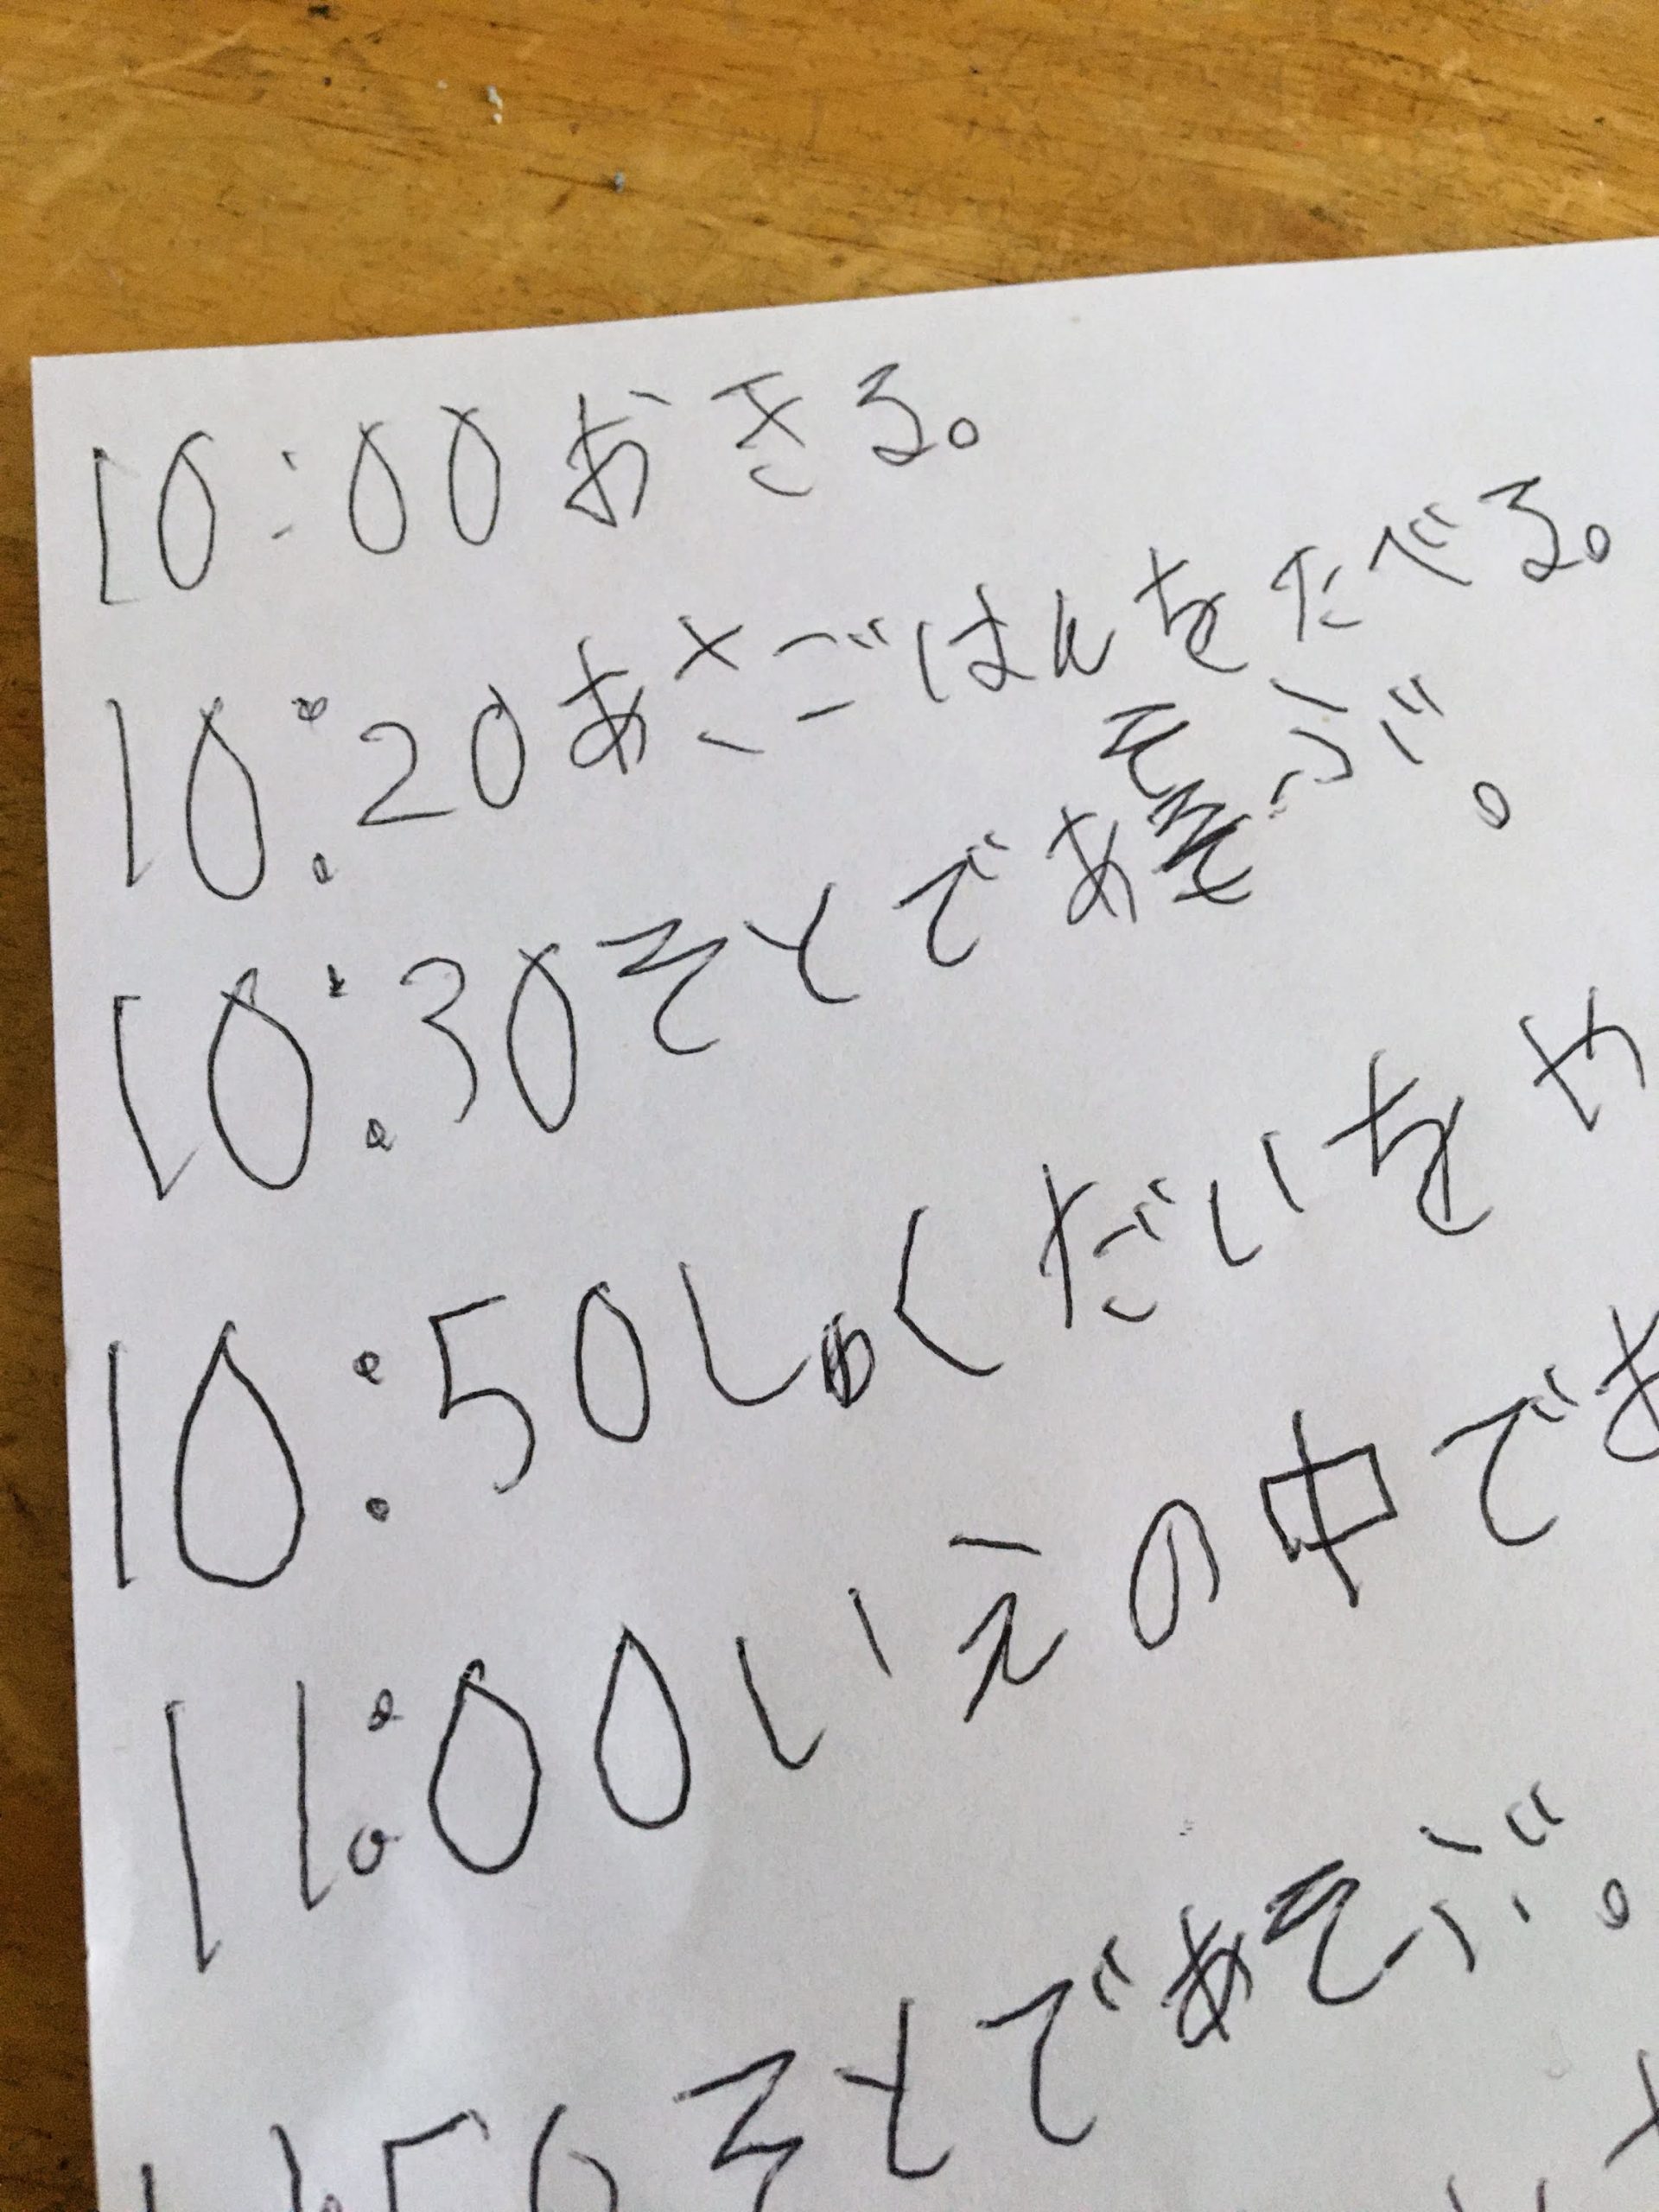 10:00おきる。
10:20あさごはんをたべる。
10:30そとであそぶ。
10:50しゅくだいをや
11:00いえの中であ
1:50そとであそぶ。